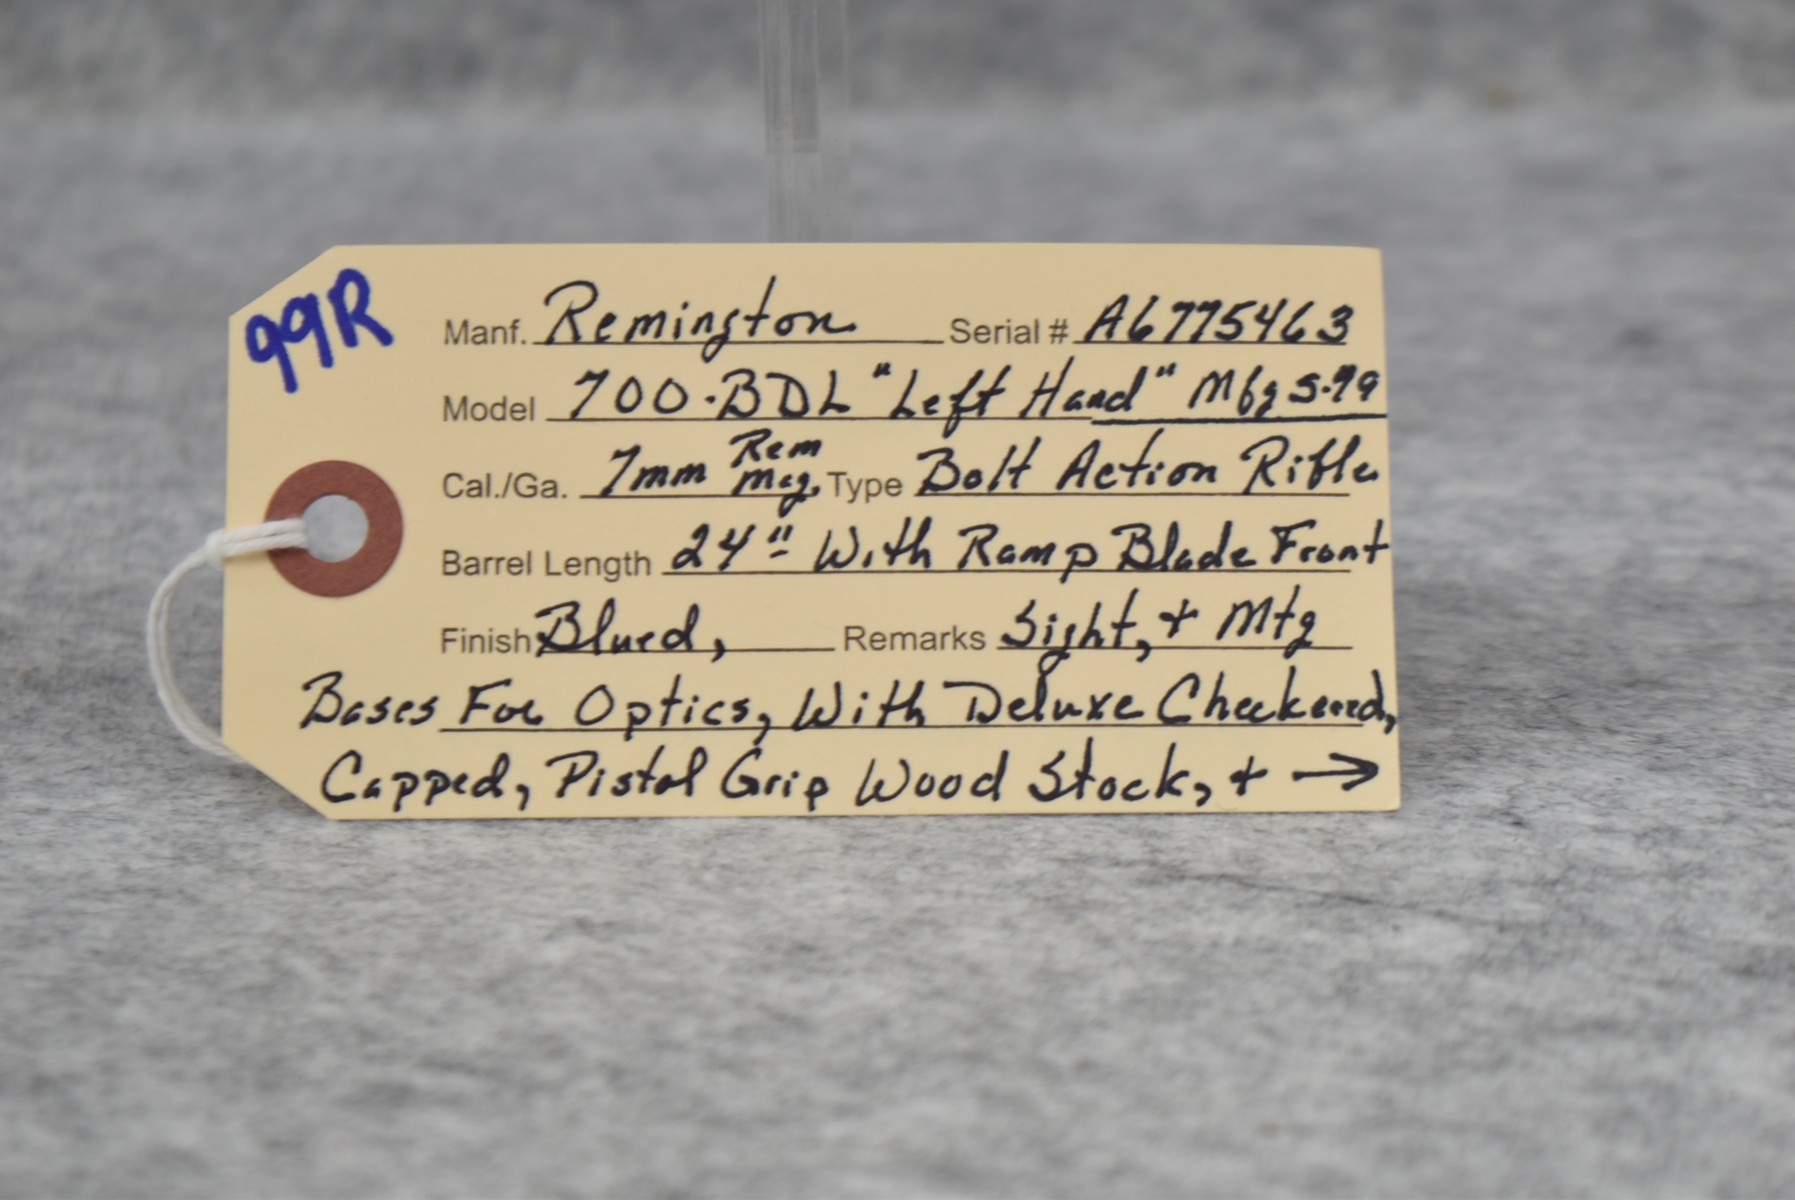 99R
Manf. Remington Serial # A6775463
Model 700-BDL "Left Hand" Mfg 5-79
Cal./Ga. 7mm Rem Mag. Type Bolt Action Rifle
Barrel Length 24" With Ramp Blade Front
Finish Blued, Remarks Sight, + Mtg
Bases For Optics, With Deluxe Checkered,
Capped, Pistol Grip Wood Stock, + →